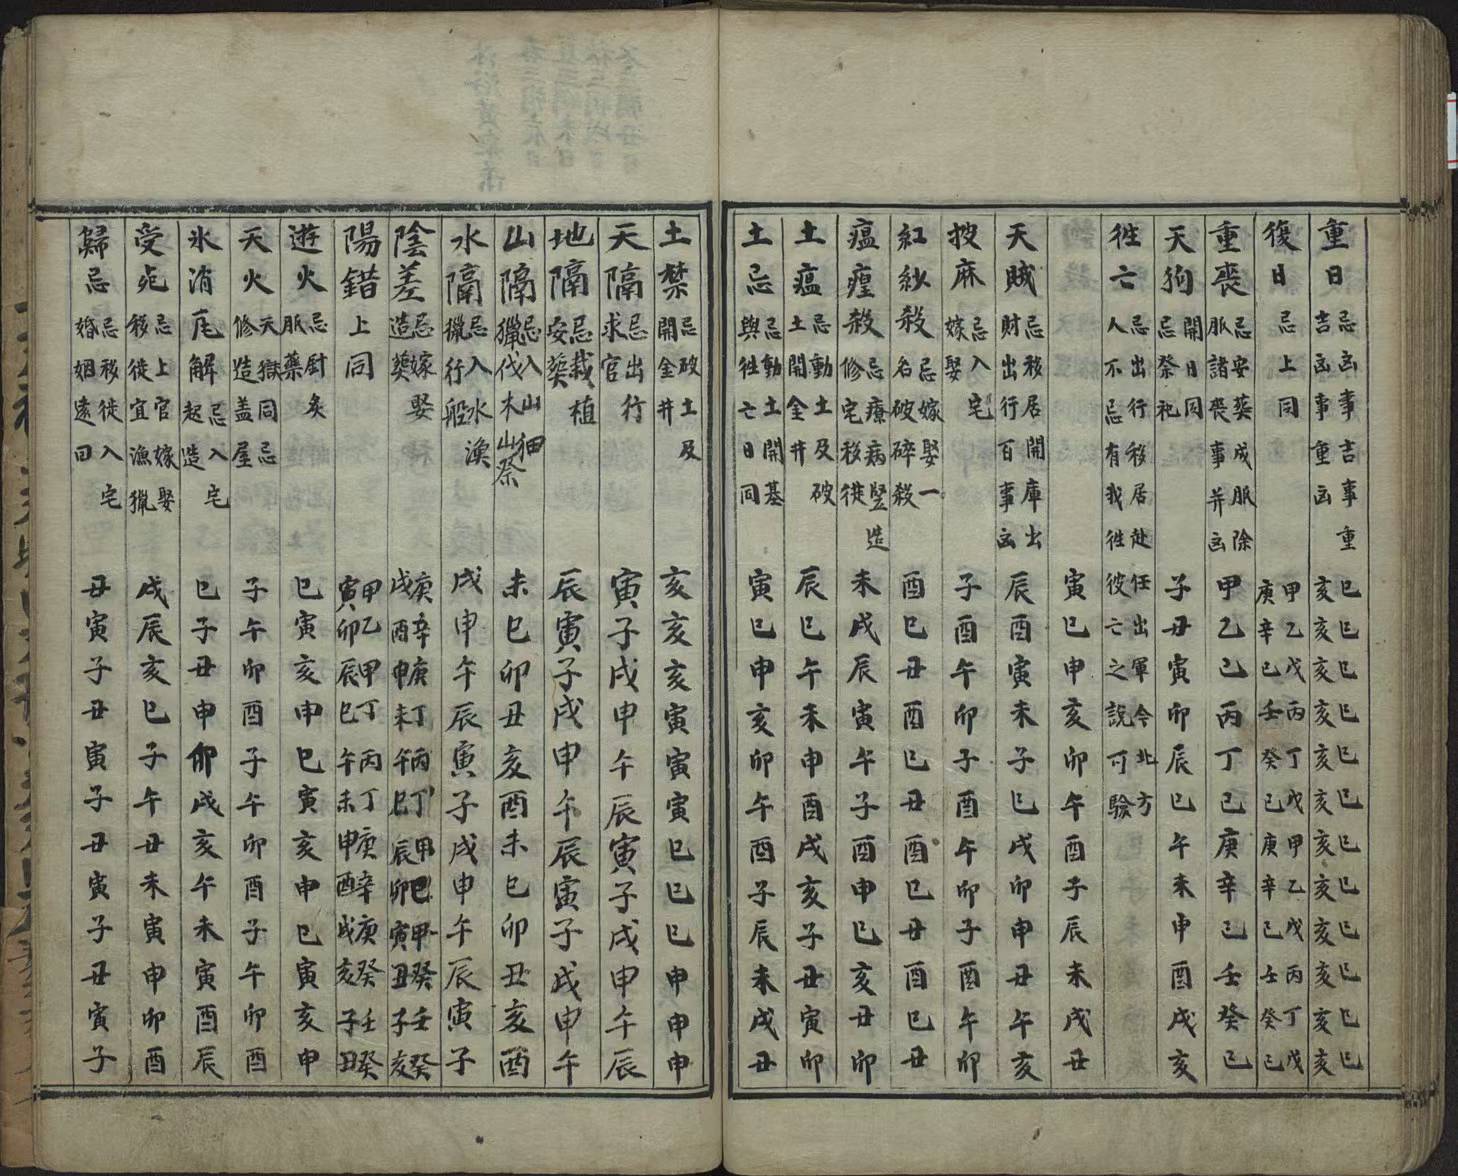 重日 忌凶事吉事重 吉凶事重凶 巳巳巳巳巳巳巳巳巳巳巳巳 亥亥亥亥亥亥亥亥亥亥亥亥
復日 忌上同 甲乙戊丙丁戊甲乙戊丙丁戊 庚辛己壬癸己庚辛己壬癸己
重喪 忌安葬成服除 服諸喪事并凶 甲乙己丙丁己庚辛己壬癸己
天狗 開日同 忌祭祀 子丑寅卯辰巳午未申酉戌亥
徃亡 忌出行移居赴任出軍今北方 人不忌有我徃彼亡之說可驗
寅巳申亥卯午酉子辰未戌丑
天賊 忌移居開庫出 財出行百事凶 辰酉寅未子巳戌卯申丑午亥
披麻 忌入宅 嫁娶 子酉午卯子酉午卯子酉午卯
紅紗殺 忌嫁娶一 名破碎殺 酉巳丑酉巳丑酉巳丑酉巳丑
瘟𤶊殺 忌療病竪造 修宅移徙 未戌辰寅午子酉申巳亥丑卯
土瘟 忌動土及破 土開金井 辰巳午未申酉戌亥子丑寅卯
土忌 忌動土開基 與徃亡日同 寅巳申亥卯午酉子辰未戌丑
土禁 忌破土及 開金井 亥亥亥寅寅寅巳巳巳申申申
天隔 忌出行 求官 寅子戌申午辰寅子戌申午辰
地隔 忌栽植 安葬 辰寅子戌申午辰寅子戌申午
山隔 忌入山畋 獵伐木山祭 未巳卯丑亥酉未巳卯丑亥酉
水隔 忌入水漁 獵行船 戌申午辰寅子戌申午辰寅子
陰差 忌嫁娶 造葬 庚辛庚丁丙丁甲乙甲癸壬癸 戌酉申未午巳辰卯寅丑子亥
陽錯 上同 甲乙甲丁丙丁庚辛庚癸壬癸 寅卯辰巳午未申酉戌亥子丑
遊火 忌厨灸 服藥 巳寅亥申巳寅亥申巳寅亥申
天火 天獄同忌 修造蓋屋 子午卯酉子午卯酉子午卯酉
氷消瓦解 忌入宅 起造 巳子丑申卯戌亥午未寅酉辰
受死 忌上官嫁娶 移徙宜漁獵 戌辰亥巳子午丑未寅申卯酉
歸忌 忌移徙入宅 婚姻遠回 丑寅子丑寅子丑寅子丑寅子